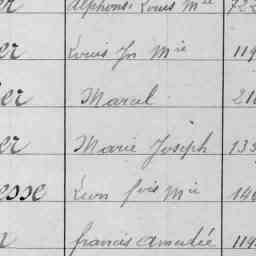 er Alphonse Louis Mie 722
er Louis Jn Mie 119
er Marcel 210
er Marie Joseph 133
esse Leon fois Mie 140
francis Amédée 119